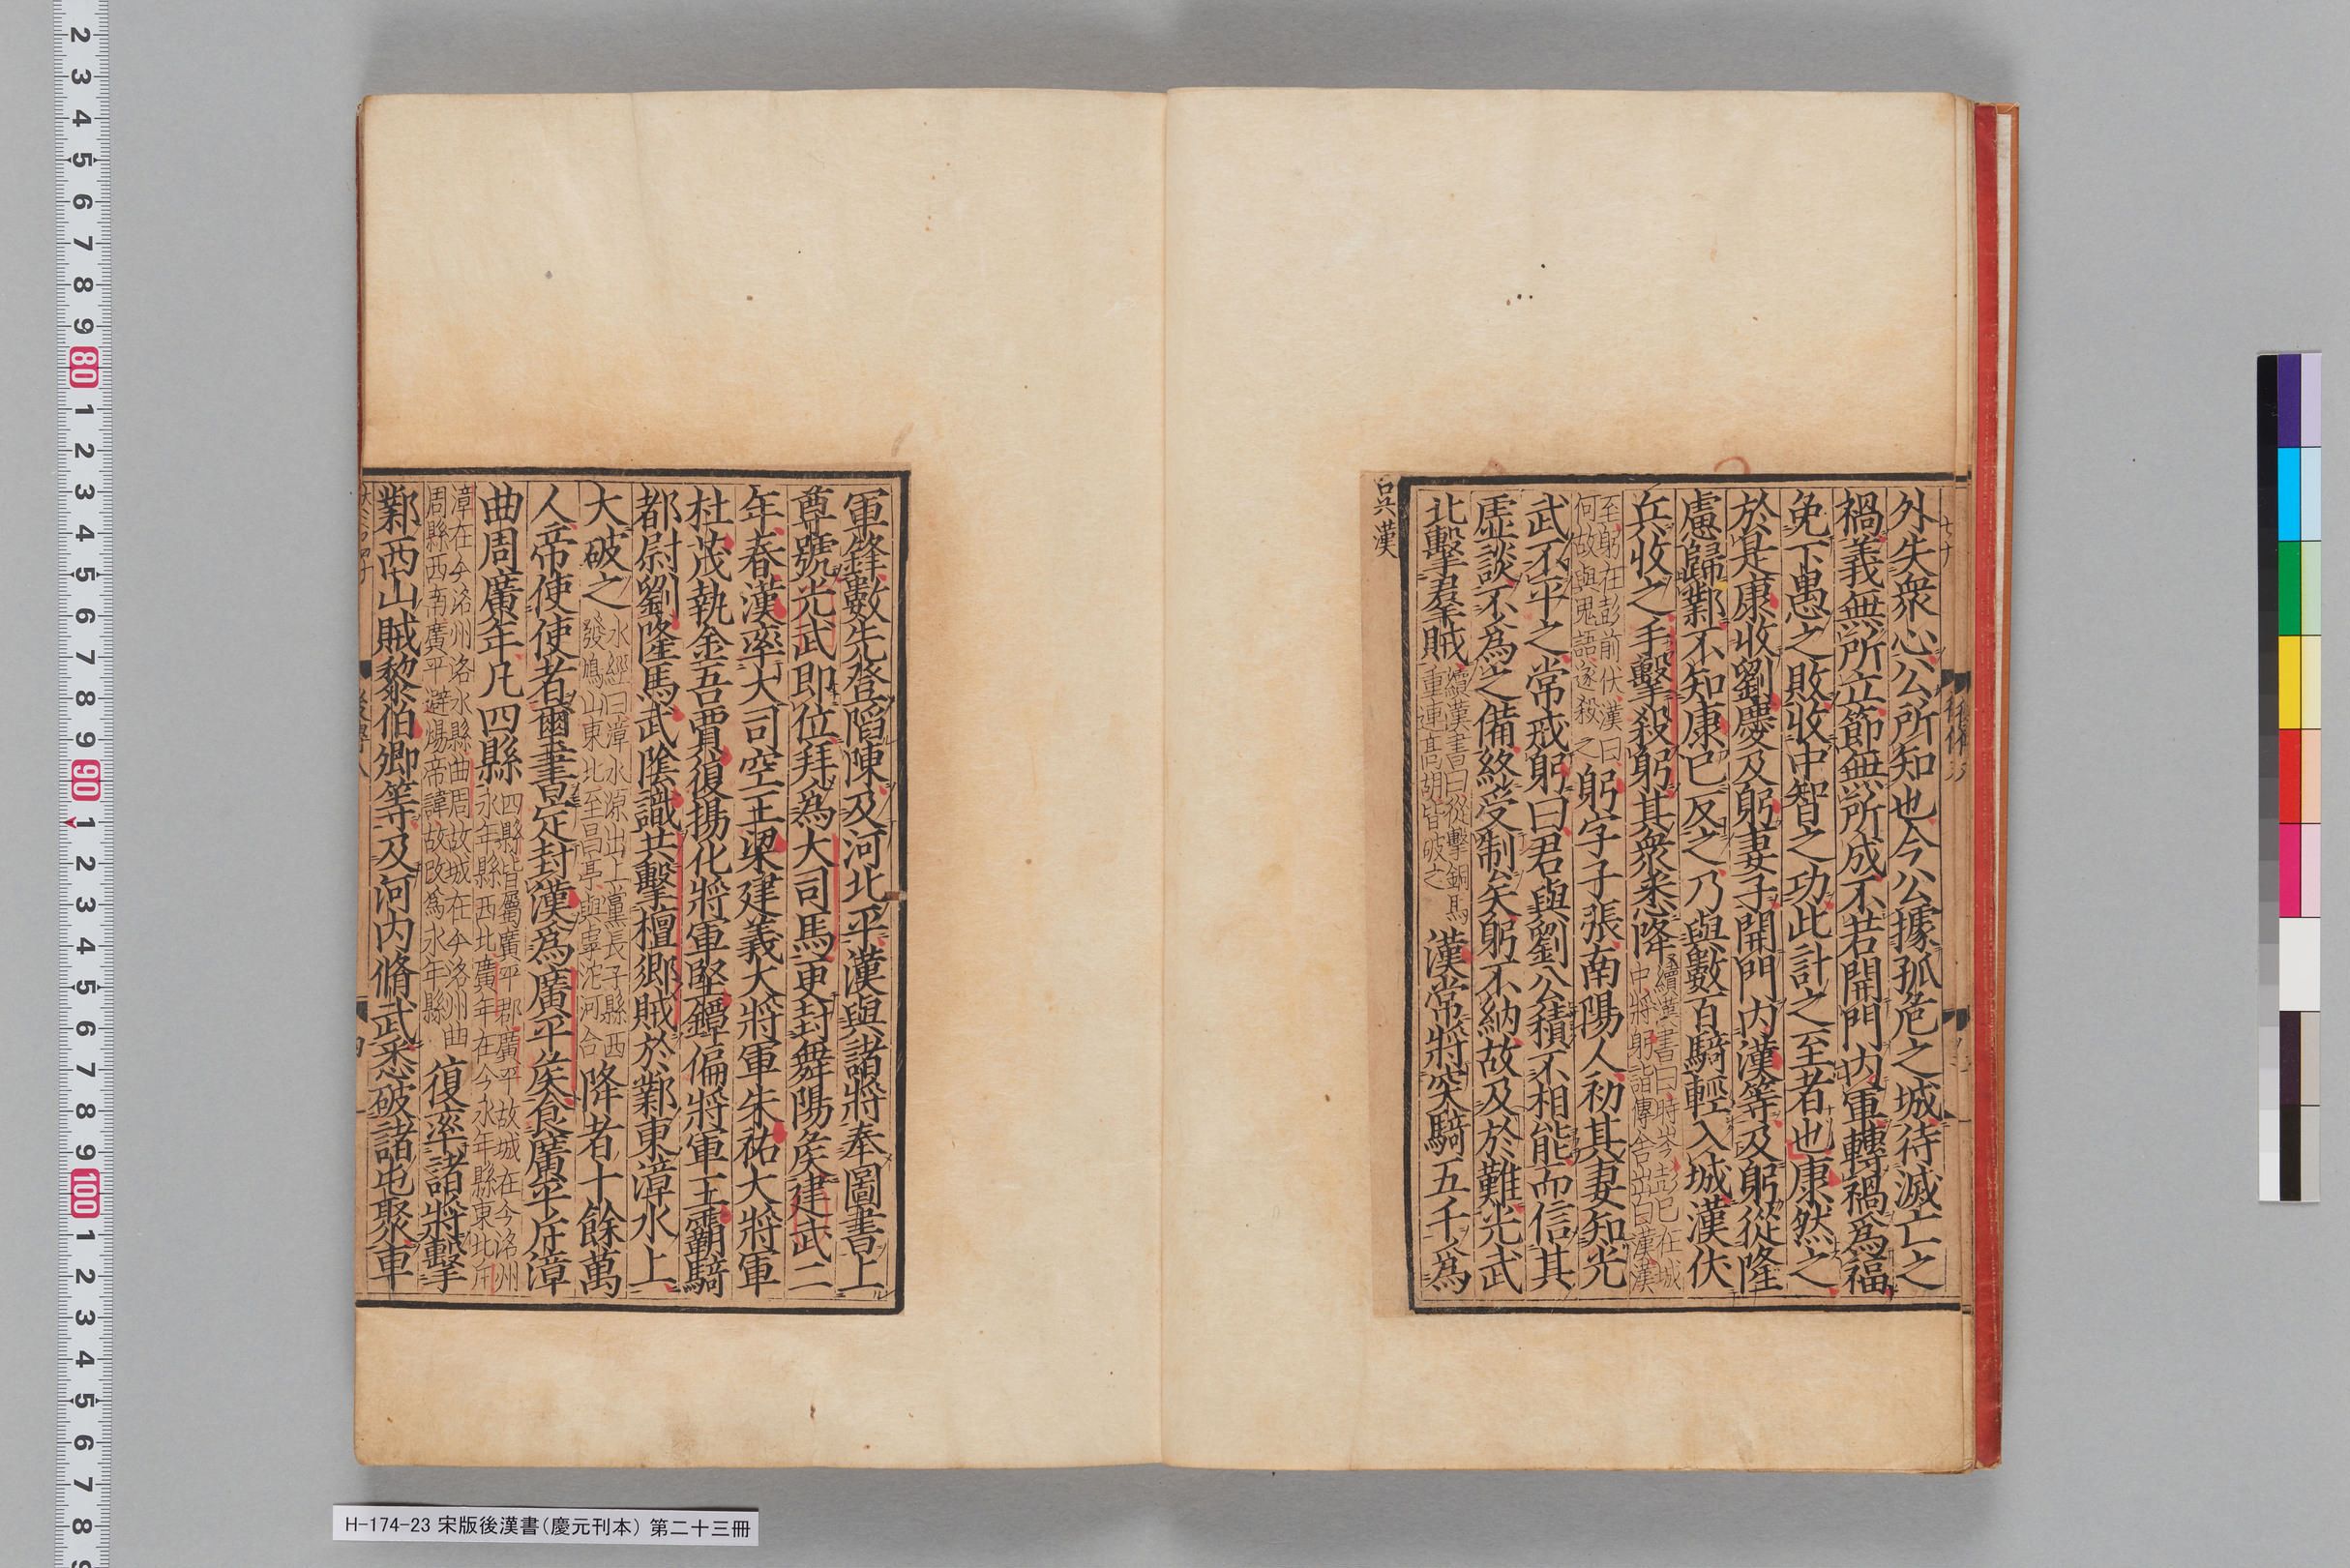 外失衆心公所知也今公據孤危之城待滅亡之
禍義無所立節無所成不若開門内軍轉禍爲福
免下愚之敗收中智之功此計之至者也康然之
於是康收劉慶及躬妻子開門内漢等及躬從隆
慮歸鄴不知康已反之乃與數百騎輕入城漢伏
兵收之手擊殺躬其衆悉降
續漢書曰時岑彭已在城
中將躬詣傳舍出白漢漢
至躬在彭前伏漢曰
何故與鬼語遂殺之
躬字子張南陽人初其妻知光
武不平之常戒躬曰君與劉公積不相能而信其
虚談不爲之備終受制矣躬不納故及於難光武
北擊羣賊
續漢書曰從擊銅馬
重連高胡皆破之
漢常將突騎五千爲
吳漢
軍鋒數先登陷陳及河北平漢與諸將奉圖書上
尊號光武即位拜爲大司馬更封舞陽矦建武二
年春漢率大司空王梁建義大將軍朱祐大將軍
杜茂執金吾賈復揚化將軍堅鐔偏將軍王霸騎
都尉劉隆馬武陰識共擊檀鄉賊於鄴東漳水上
大破之
水經曰漳水源出上黨長子縣西
發鳩山東北至昌亭與虖沱河合
降者十餘萬
人帝使使者璽書定封漢爲廣平矦食廣平斥漳
曲周廣年凡四縣
四縣皆屬廣平郡廣平故城在今洺州
永年縣西北廣年在今永年縣東北斥
漳在今洺州洺水縣曲周故城在今洺州曲
周縣西南廣平避煬帝諱故改爲永年縣
復率諸將擊
鄴西山賊黎伯卿等及河内脩武悉破諸屯聚車
H-174-23 宋版後漢書(慶元刊本) 第二十三冊
2
3
4
5
6
7
8
9
80
1
2
3
4
5
6
7
8
9
90
1
2
3
4
5
6
7
8
9
100
1
2
3
4
5
6
7
8
9